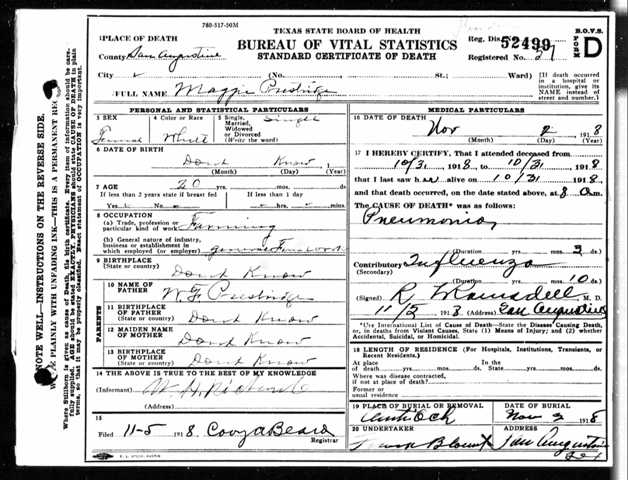 760-517-50M
TEXAS STATE BOARD OF HEALTH
BUREAU OF VITAL STATISTICS
STANDARD CERTIFICATE OF DEATH
B.O.V.S.
FORM D
Reg. Dis. 52499
Registered No. 27
1 PLACE OF DEATH
County San Augustine
City (No. St.; Ward)
[If death occurred in a hospital or institution, give its NAME instead of street and number.]
2 FULL NAME Maggie
PERSONAL AND STATISTICAL PARTICULARS
3 SEX Female
4 Color or Race White
5 Single, Married, Widowed or Divorced (Write the word) Single
6 DATE OF BIRTH
Dont Know
(Month) (Day) (Year)
7 AGE 20 yrs. mos. ds.
If less than 2 years state if breast fed
If less than 1 day
Yes No hrs. or mins.
8 OCCUPATION
(a) Trade, profession or particular kind of work Farming
(b) General nature of industry, business or establishment in which employed (or employer)
9 BIRTHPLACE
(State or country) Dont Know
PARENTS
10 NAME OF FATHER W. F.
11 BIRTHPLACE OF FATHER
(State or country) Dont Know
12 MAIDEN NAME OF MOTHER Dont Know
13 BIRTHPLACE OF MOTHER
(State or country) Dont Know
14 THE ABOVE IS TRUE TO THE BEST OF MY KNOWLEDGE
(Informant)
(Address)
15
Filed 11-5 1918. Beard
Registrar
MEDICAL PARTICULARS
16 DATE OF DEATH
Nov 2, 1918
(Month) (Day) (Year)
17 I HEREBY CERTIFY, That I attended deceased from
10/31 1918 to 10/31 1918
that I last saw her alive on 10/31 1918
and that death occurred, on the date stated above, at 8 a.m.
The CAUSE OF DEATH* was as follows:
Pneumonia
(Duration yrs. mos. 3 ds.)
Contributory Influenza
(Secondary)
(Duration yrs. mos. 10 ds.)
(Signed) Ramsdell, M. D.
1918 (Address) San Augustine
*Use International List of Cause of Death—State the Disease Causing Death, or in deaths from Violent Causes, State (1) Means of Injury; and (2) whether Accidental, Suicidal, or Homicidal.
18 LENGTH OF RESIDENCE (For Hospitals, Institutions, Transients, or Recent Residents.)
At place of death yrs. mos. ds. In the State yrs. mos. ds.
Where was disease contracted, if not at place of death?
Former or usual residence
19 PLACE OF BURIAL OR REMOVAL
Antioch
DATE OF BURIAL
Nov 3 1918
20 UNDERTAKER
Blount
ADDRESS
San Augustine
Tex
NOTE WELL—INSTRUCTIONS ON THE REVERSE SIDE.
PLAINLY WITH UNFADING INK—THIS IS A PERMANENT